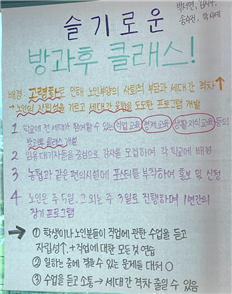 슬기로운
방과후 클래스!
배경: 고령화로 인해 노인부양의 사회적 부담과 세대간 격차↑
→ 노인의 자립성을 기르고 세대간 운합을 도모한 프로그램 개발
1 학교에 전 세대가 참여할 수 있는 직업교육, 경제교육, 생활지식교육 등의
방과후 클래스 개발
2 임용대기자들을 중심으로 강사를 모집하여 각 학교에 배정
3 농협과 같은 편의시설에 포스터를 부착하여 홍보 및 신청
4 노인은 주 5일, 그 외는 주 3일로 진행하며 1년간의
장기 프로그램
→ ① 학생이나 노인분들이 직업에 관한 수업을 듣고
자립성↑, + 직업에 대한 모든 것 연습
② 일하는 중에 겪을 수 있는 문제를 대처 O
③ 수업을 듣고 소통 → 세대간 격차 줄일 수 있음